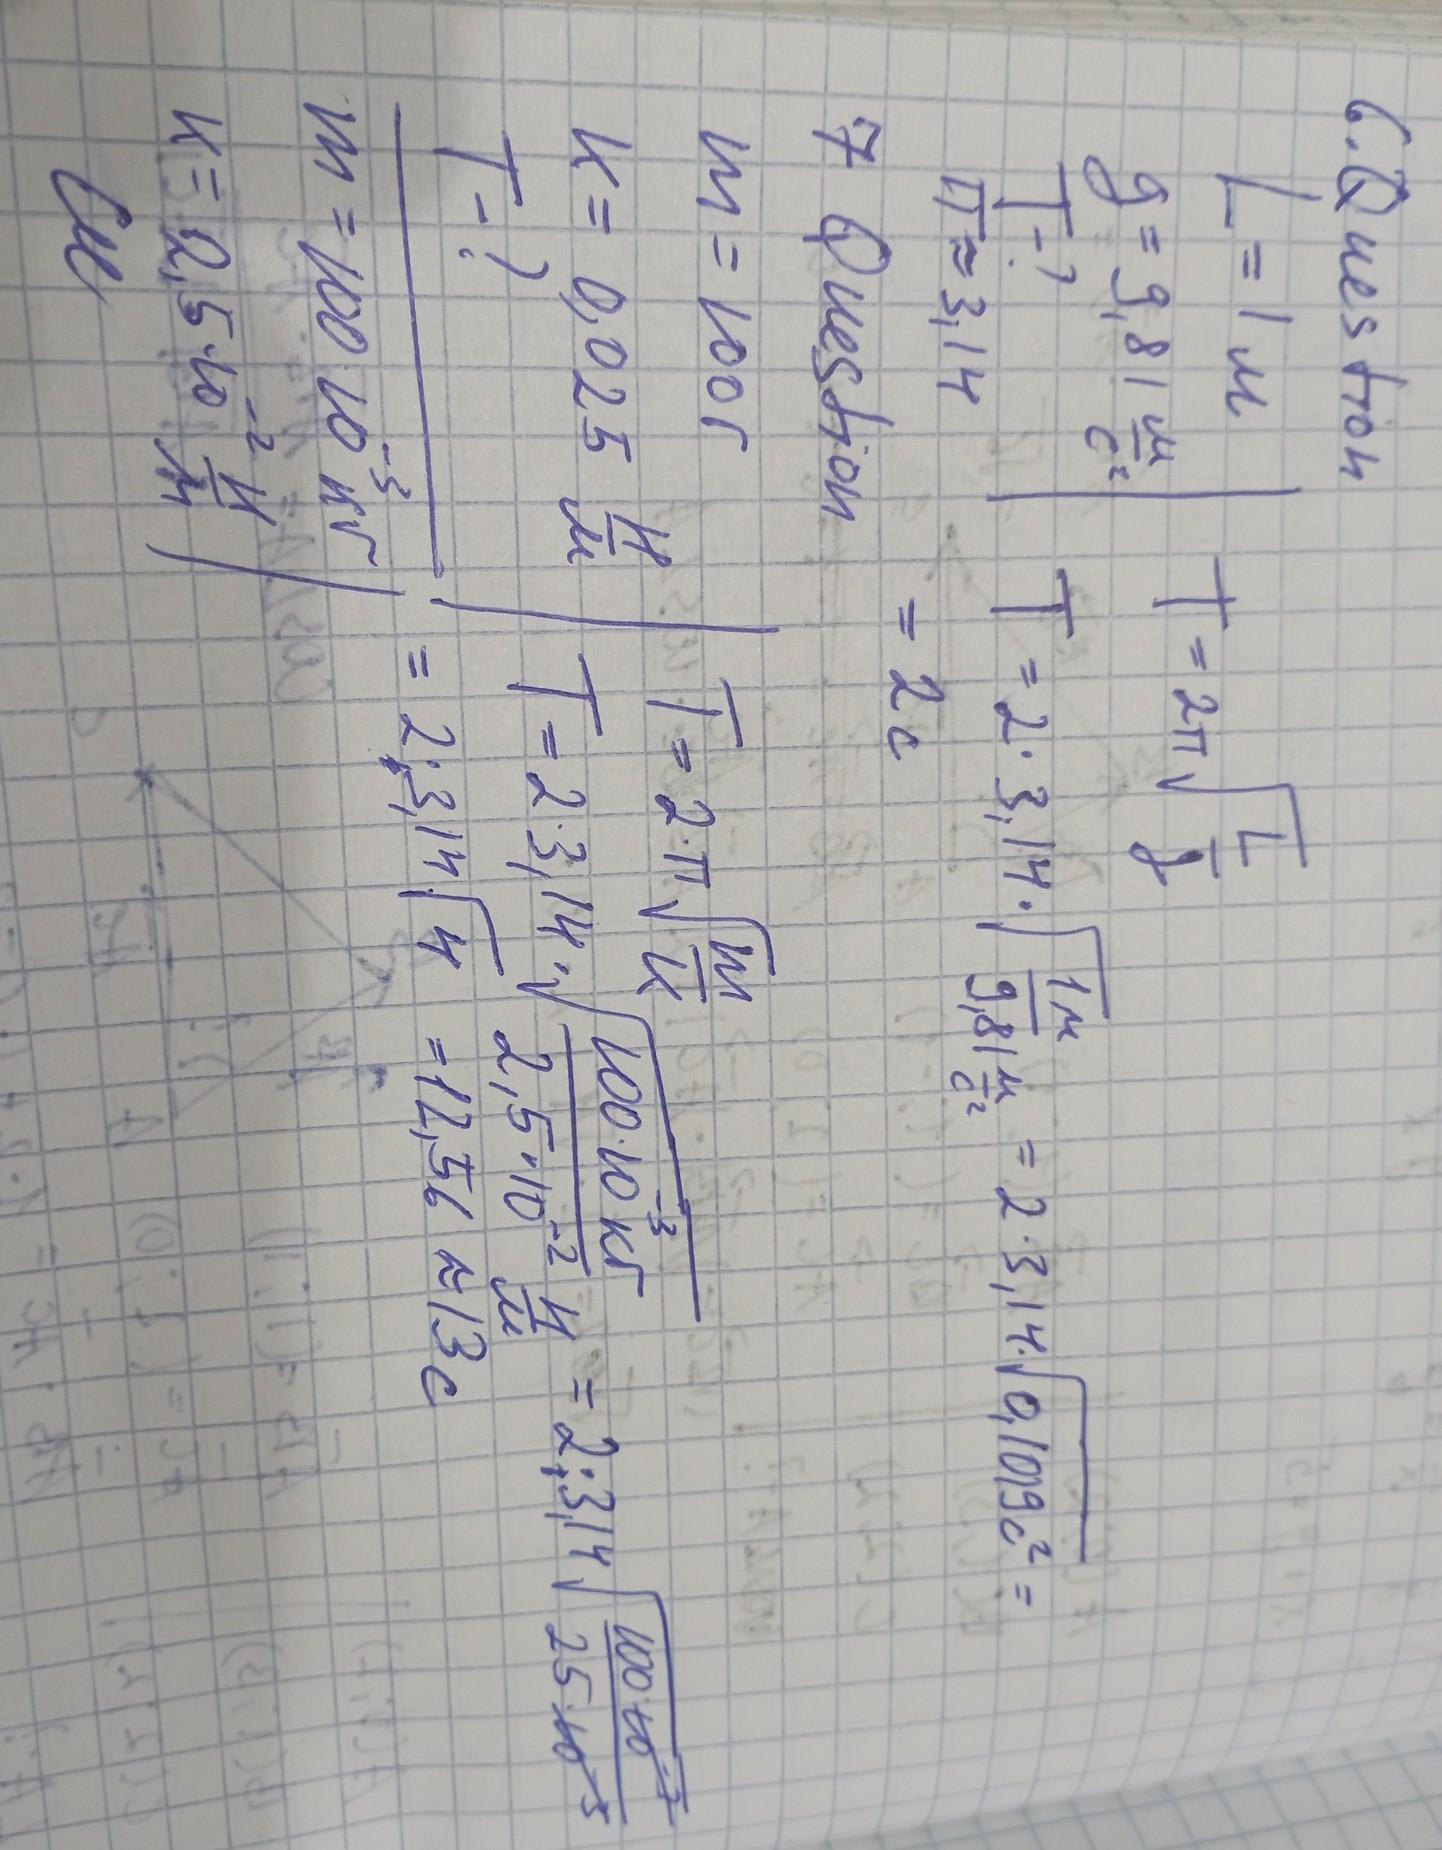 6. Question
L = 1 м
g = 9,81 м/с²
T - ?
π ≈ 3,14
T = 2π√(L/g)
T = 2 · 3,14 · √(1м / 9,81 м/с²) = 2 · 3,14 · √(0,1019с²) =
= 2с
7 Question
m = 100г
k = 0,025 Н/м
T - ?
m = 100·10⁻³ кг
k = 2,5·10⁻² Н/м
T = 2·π√(m/k)
T = 2·3,14·√(100·10⁻³ кг / 2,5·10⁻² Н/м) = 2·3,14√(100·10⁻³ / 25·10⁻³)
= 2·3,14√4 = 12,56 ≈ 13с